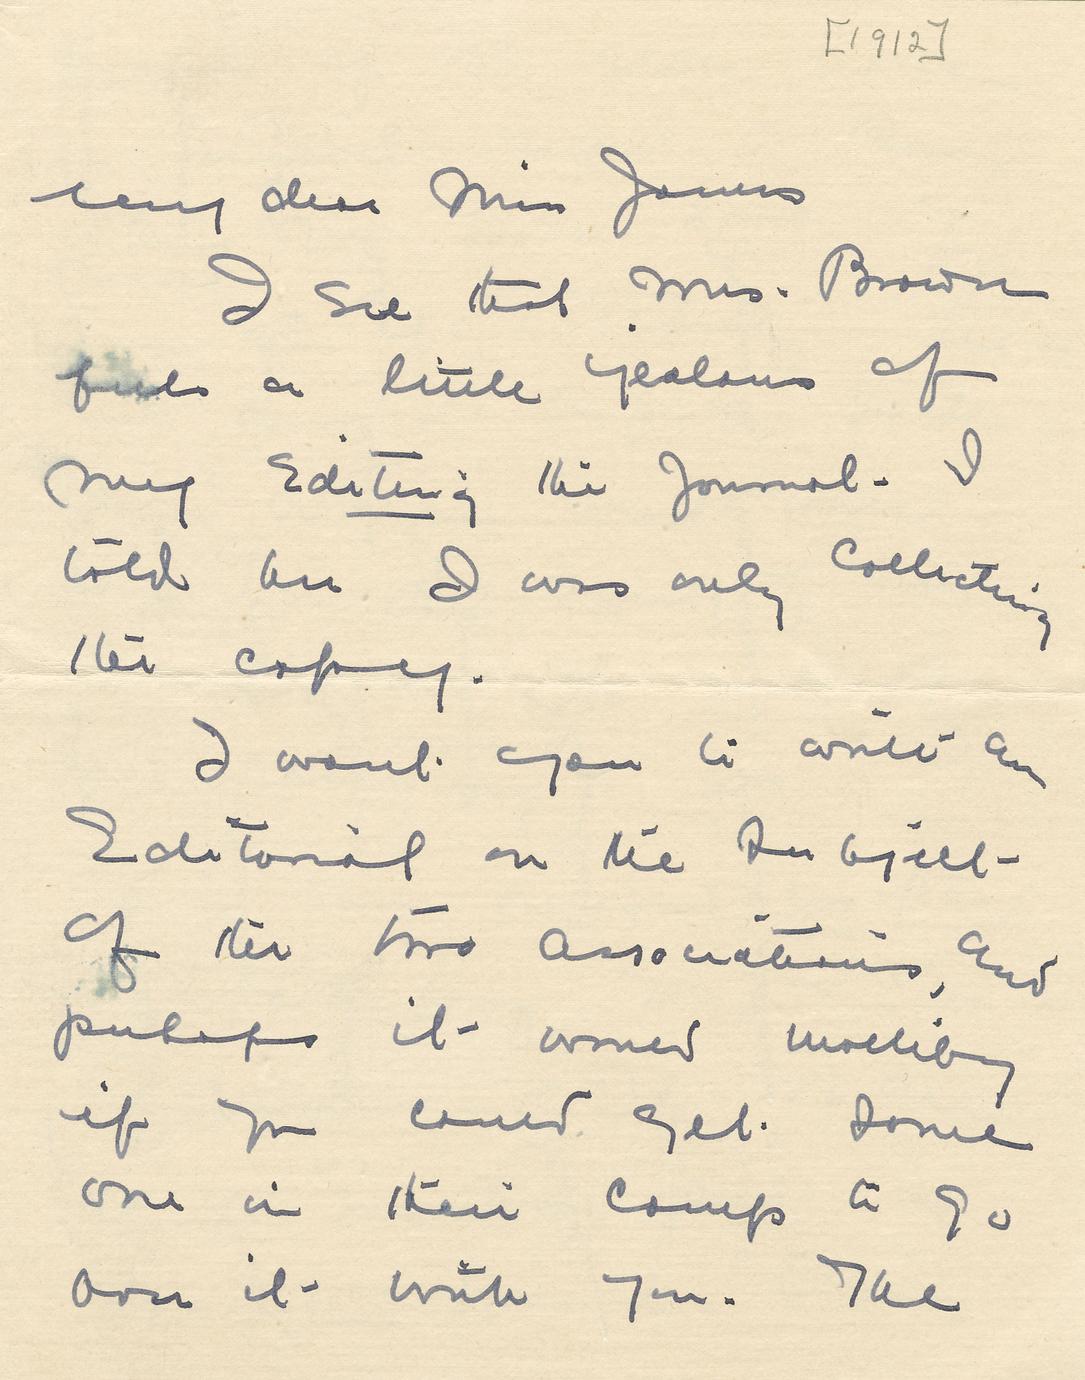 [1912]
My dear Miss James
I see that Mrs. Brown
feels a little jealous of
my Editing the Journal. I
told her I was only collecting
the copy.
I want you to write an
Editorial on the subject
of the two associations, and
perhaps it would mollify
if you could get some
one in their camp to go
over it with you. The